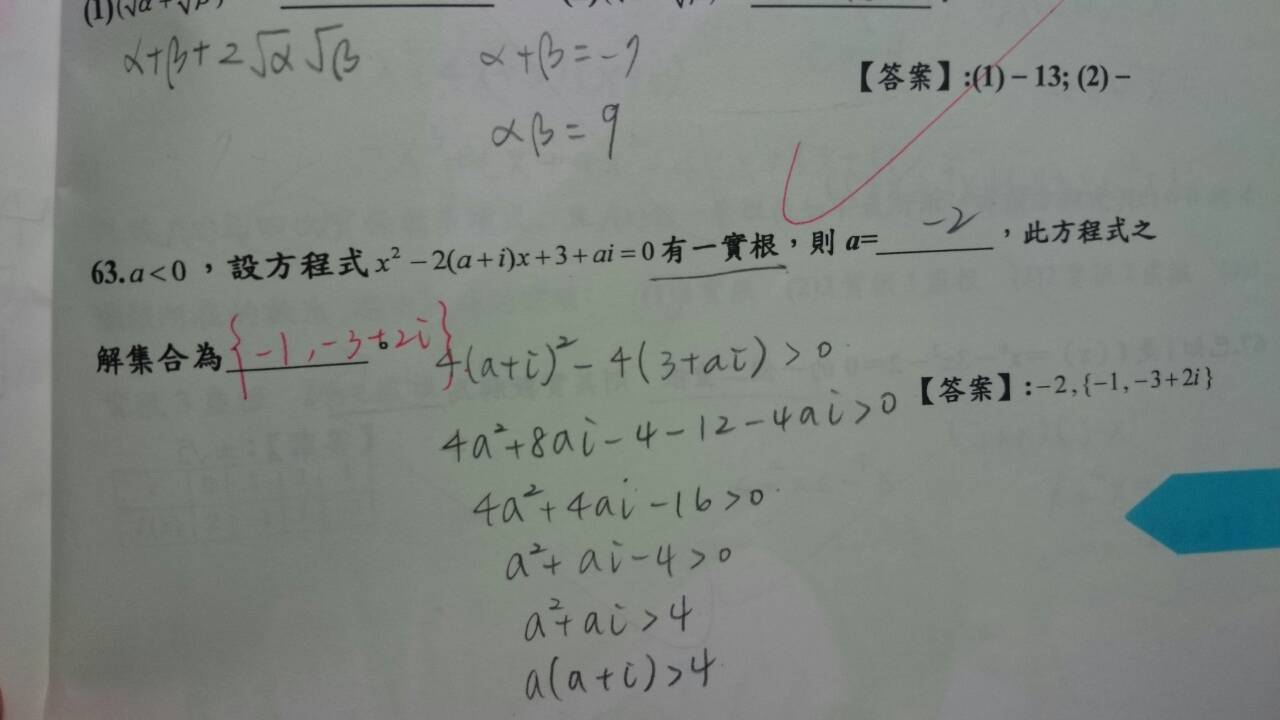 α+β+2√α√β α+β=-7
【答案】:(1)－13; (2)－
αβ=9
63.a<0，設方程式x²－2(a+i)x+3+ai=0有一實根，則 a= -2 ，此方程式之
解集合為{-1,-3+2i}。 4(a+i)²-4(3+ai)>0
【答案】:－2,{－1,－3+2i}
4a²+8ai-4-12-4ai>0
4a²+4ai-16>0
a²+ai-4>0
a²+ai>4
a(a+i)>4